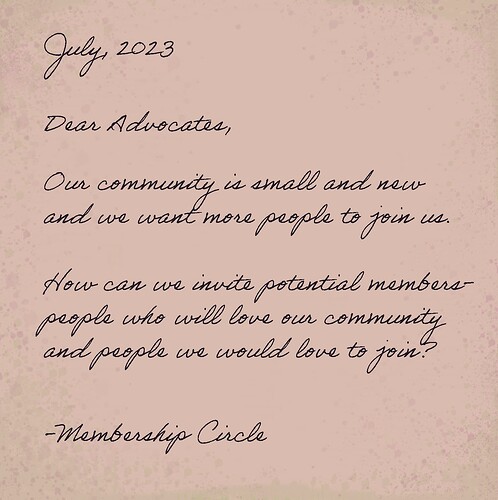 July, 2023
Dear Advocates,
Our community is small and new
and we want more people to join us.
How can we invite potential members-
people who will love our community
and people we would love to join?
-Membership Circle